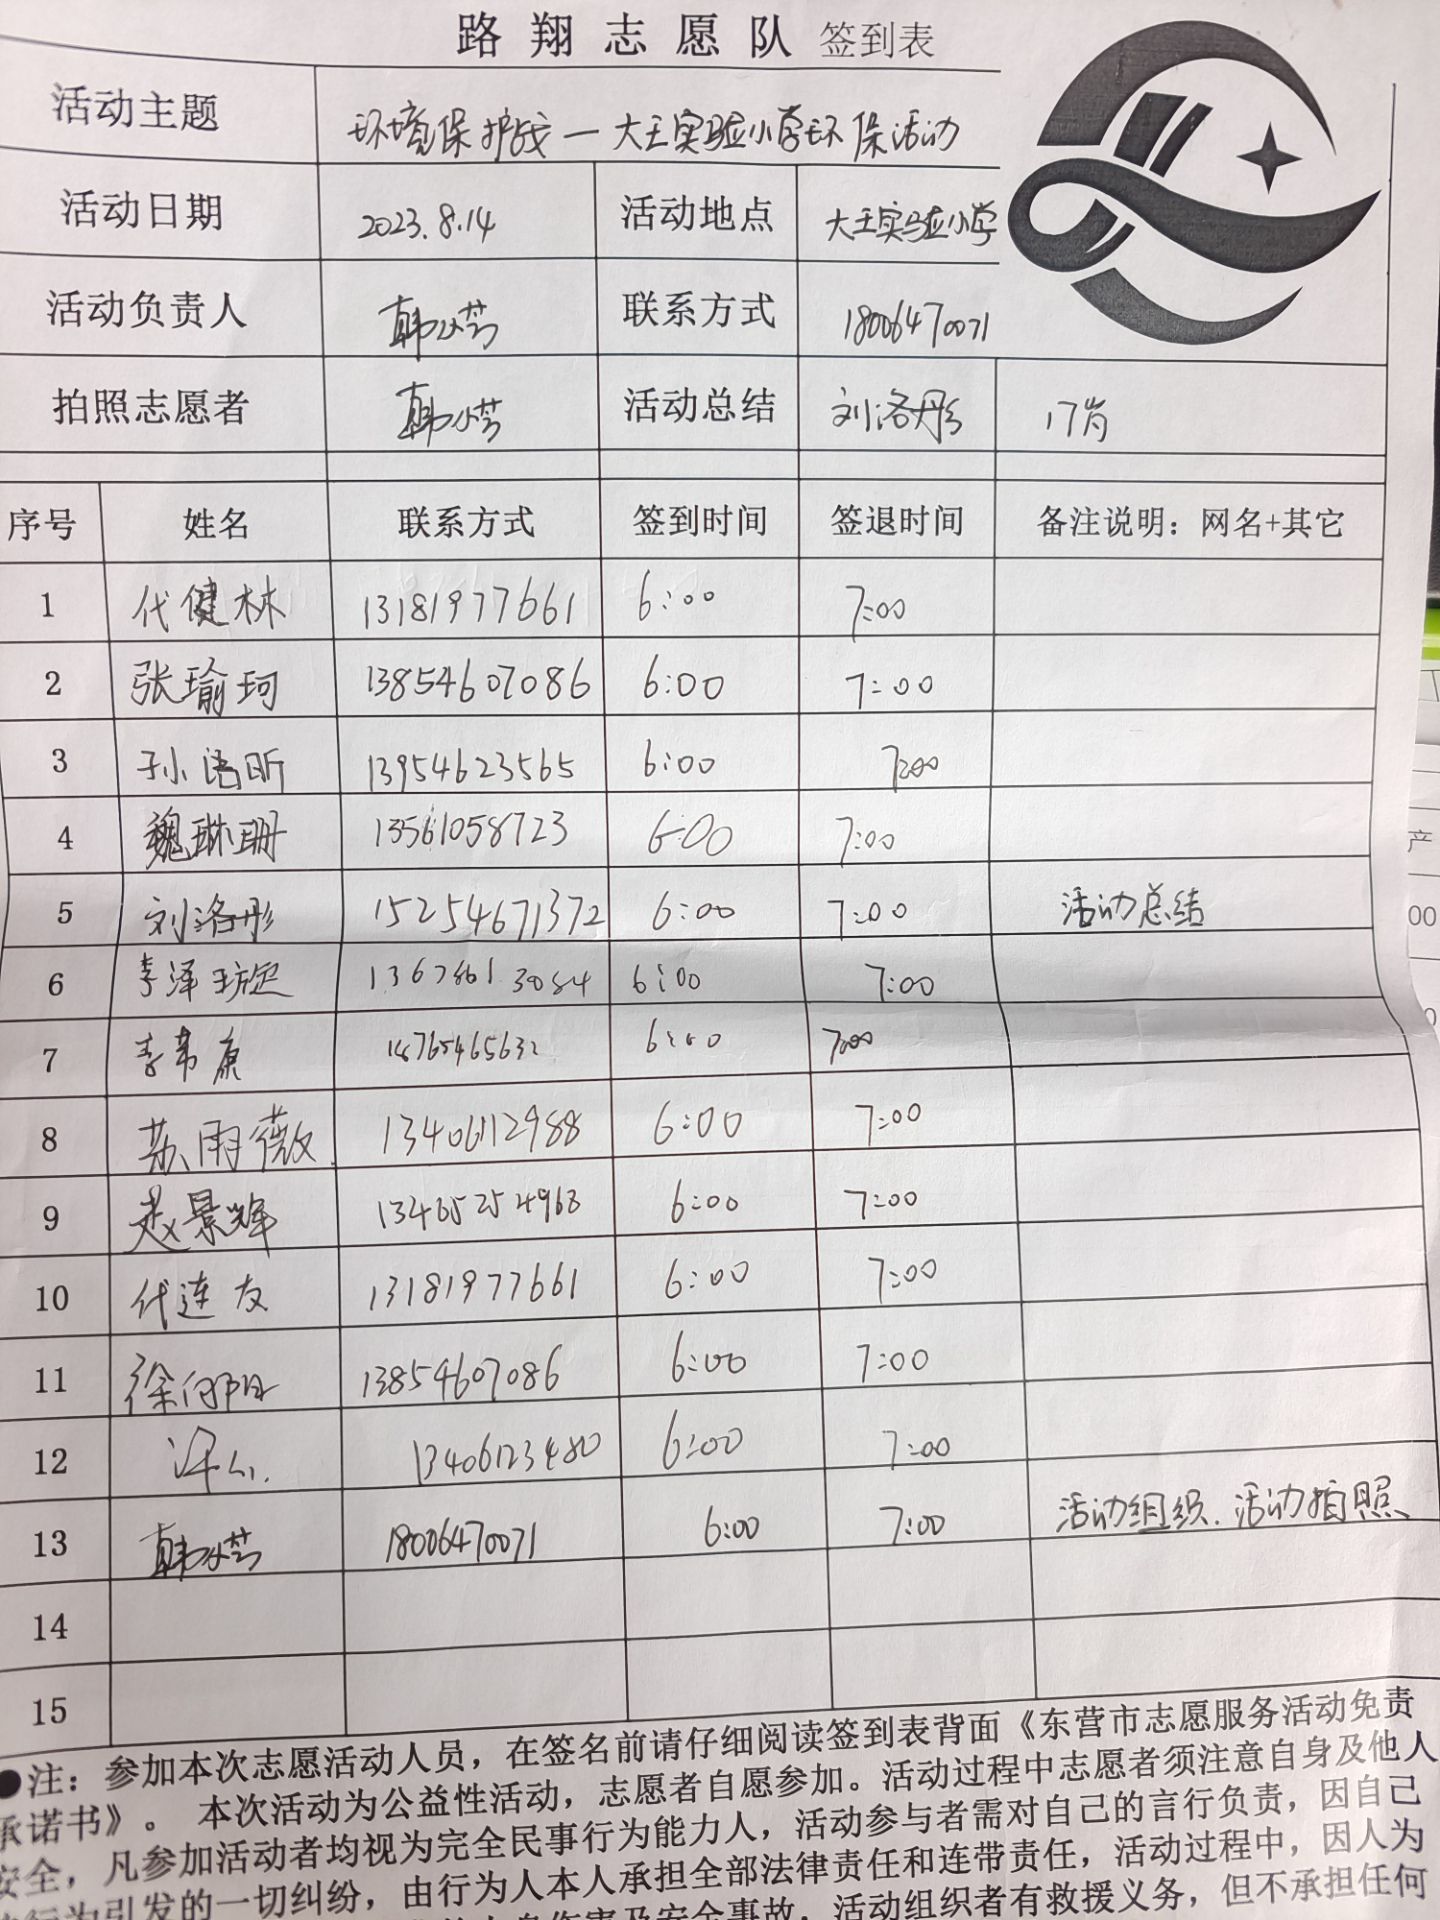 路翔志愿队 签到表
活动主题 环境保护战一大王实验小学环保活动
活动日期 2023.8.14 活动地点 大王实验小学
活动负责人 联系方式 18006470071
拍照志愿者 活动总结 刘洛彤 17岁
序号 姓名 联系方式 签到时间 签退时间 备注说明：网名+其它
1 代健林 13181977661 6:00 7:00
2 张瑜珂 13854607086 6:00 7:00
3 孙语昕 13954623565 6:00 7:00
4 魏琳珊 13561058723 6:00 7:00
5 刘洛彤 15254671372 6:00 7:00 活动总结
6 李泽 13678613084 6:00 7:00
7 李 康 6:00 7:00
8 苏雨薇 13406112988 6:00 7:00
9 赵景辉 13465254968 6:00 7:00
10 代连友 13181977661 6:00 7:00
11 徐向阳 13854607086 6:00 7:00
12 13406123480 6:00 7:00
13 18006470071 6:00 7:00 活动组织.活动拍照
14
15
●注：参加本次志愿活动人员，在签名前请仔细阅读签到表背面《东营市志愿服务活动免责
承诺书》。本次活动为公益性活动，志愿者自愿参加。活动过程中志愿者须注意自身及他人
安全，凡参加活动者均视为完全民事行为能力人，活动参与者需对自己的言行负责，因自己
行为引发的一切纠纷，由行为人本人承担全部法律责任和连带责任，活动过程中，因人为
人身伤害及安全事故，活动组织者有救援义务，但不承担任何